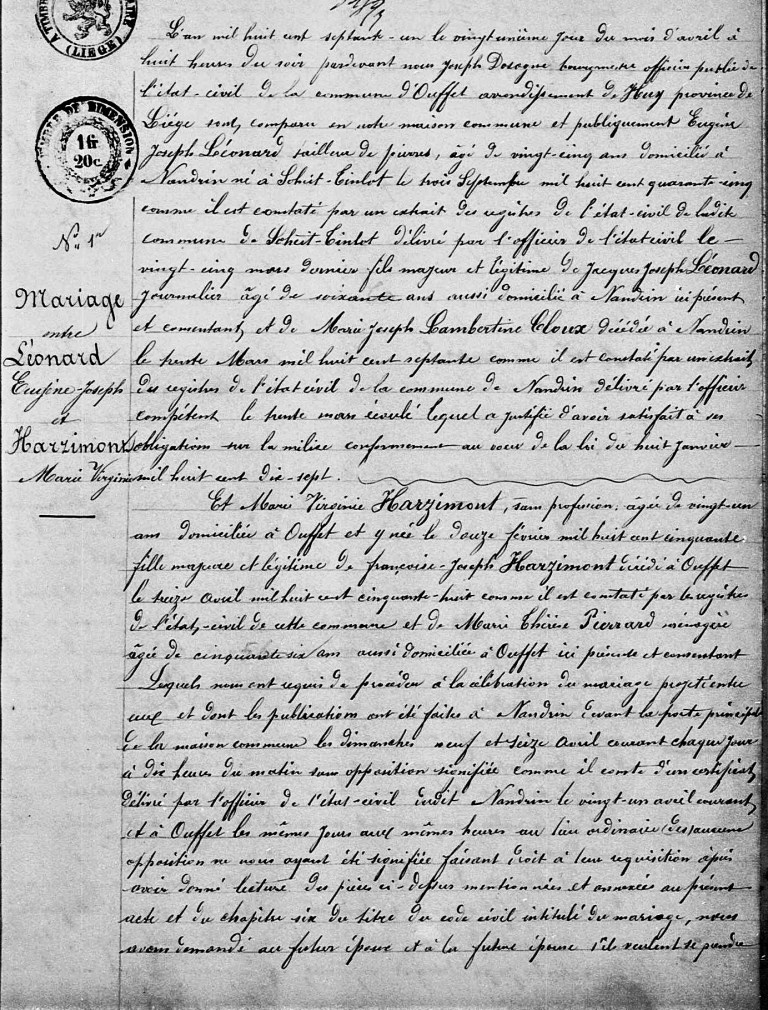 A TIMBRE
(LIÉGE)
TIMBRE DE DIMENSION
1 fr
20 c.
N° 1er
Mariage
entre
Léonard
Eugène-Joseph
et
Harzimont
Marie Virginie
L'an mil huit cent septante-un le vingt unième jour du mois d'avril à
huit heures du soir pardevant nous Joseph bourgmestre officier public de
l'état-civil de la commune d'Ouffet arrondissement de Huy province de
Liége sont comparu en notre maison commune et publiquement Eugène
Joseph Léonard tailleur de pierres, âgé de vingt-cinq ans domicilié à
Nandrin né à Scheit-Tinlot le trois Septembre mil huit cent quarante-cinq
comme il est constaté par un extrait des registres de l'état-civil de ladite
commune de Scheit-Tinlot délivré par l'officier de l'état civil le
vingt-cinq mars dernier fils majeur et légitime de Jacques Joseph Léonard
journalier âgé de soixante ans aussi domicilié à Nandrin ici présent
et consentant, et de Marie Joseph Lambertine Cloux décédée à Nandrin
le trente Mars mil huit cent septante comme il est constaté par un extrait
des registres de l'état civil de la commune de Nandrin délivré par l'officier
compétent le trente mars écoulé lequel a justifié d'avoir satisfait à ses
obligations sur la milice conformément au voeu de la loi du huit Janvier
mil huit cent dix-sept.
Et Marie Virginie Harzimont, sans profession, âgée de vingt-un
ans domiciliée à Ouffet et y née le douze février mil huit cent cinquante
fille majeure et légitime de françoise-Joseph Harzimont décédé à Ouffet
le seize avril mil huit cent cinquante-huit comme il est constaté par les registres
de l'état-civil de cette commune et de Marie Thérèse Pierrard ménagère
âgée de cinquante six ans aussi domiciliée à Ouffet ici présente et consentant
Lesquels nous ont requis de procéder à la célébration du mariage projeté entre
eux et dont les publications ont été faites à Nandrin devant la porte principale
de la maison commune les dimanches neuf et seize avril courant chaque jour
à dix heures du matin sans opposition signifiée comme il conste d'un certificat
délivré par l'officier de l'état-civil dudit Nandrin le vingt-un avril courant,
et à Ouffet les mêmes jours aux mêmes heures au lieu ordinaire aucune
opposition ne nous ayant été signifiée faisant droit à leur réquisition après
avoir donné lecture des pièces ci-dessus mentionnées et annexées au présent
acte et du chapitre six du titre du code civil intitulé du mariage, nous
avons demandé au futur époux et à la future épouse s'ils veulent se prendre